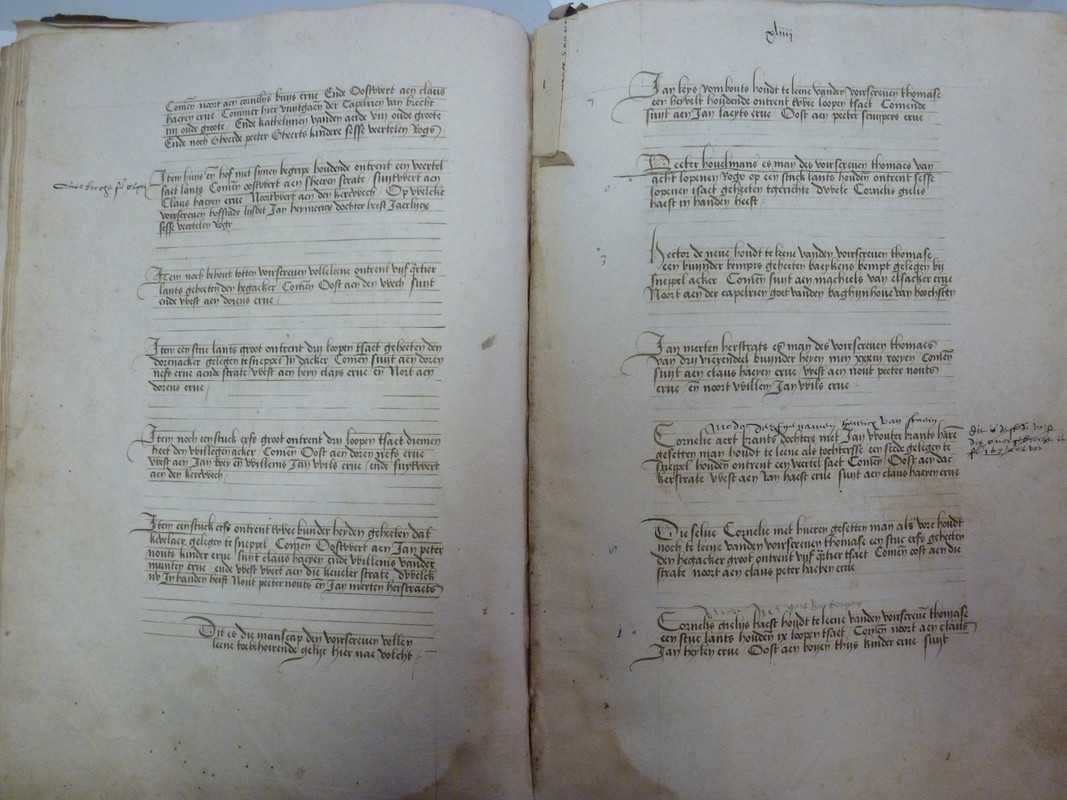 Comen noort aen cornelijs buijs erue Ende Oostwert aen claus
haeren erue Commer hier vuijtgaen der Capelrien van brecht
iiij oude groote Ende kathelijnen vanden aende viij oude groote
Ende noch Gheerde peeter Gheerts kindere sesse vertelen Rogs
Item huijs en hof met sijnen begrijpe houdende ontrent een vertel
saet lants Comen oostwert aen sheeren strate suijtwert aen
Claus haeren erue Noortwert aen den kerckwech Op welcke
vorscreuen hofstade lijsbet Jan heijmericx dochter heeft Jaerlijcx
sesse vertelen rogx
Item noch behoirt totten voirscreuen volleleene ontrent vijf
lants geheeten den hegacker Comen Oost aen den wech suijt
ende west aen dorens erue
Item een stuc lants groot ontrent drij loopen tsaet geheeten den
dorenacker gelegen te sneppel In dacker Comen suijt aen doren
nefs erue aende strate west aen heijn claijs erue en Nort aen
dorens erue
Item noch een stuck erfs groot ontrent drij loopen tsaet diemen
heet den willegen acker Comen Oost aen doren nefs erue
west aen Jan boen en willems Jan wils erue ende suijtwert
aen den kerckwech
Item een stuck erfs ontrent twee bunder heijden geheeten dat
kevelaer gelegen te sneppel Comen Oostwert aen Jan peter
nouts kinder erue suijt claus haeren ende willems vander
munten erue ende west wert aen die keueler strate Dwelck
nv In handen heeft Nout peeter nouts en Jan merten herstraets
Dit es die manscap den vorscreuen vollen
leene toebehoirende gelijc hier nae volcht
xliiij
Jan leijs rombouts houdt te leene vander vorscreuen thomase
een heijvelt houdende ontrent twee loopen tsaet Comende
suijt aen Jan laeijts erue Oost aen peeter scuijpers erue
Peeter houelmans es man des vorscreuen thomaes van
acht lopenen Rogs op een stuck lants houden ontrent sesse
lopenen tsaet geheeten tgerichte Dwele Cornelis gielis
haest in handen heeft
3
Hector de neue houdt te leene vanden vorscreuen thomase
een buijnder bempts geheeten baeijkens bempt gelegen bij
sneppel acker Comen suijt aen machiels van elsacker erue
Noort aen der capelrien goet vanden baghijnhoue van hoochsten
Jan merten herstrats es man des vorscreuen thomaes
van drij vierendeel buijnder heijen min xxxiiij roeijen Comen
suijt aen claus haeren erue west aen nout peeter nouts
erue en noort willem Jan wils erue
Cornelie aert brants dochtere met Jan wouter brants haren
gesetten man houdt te leene als tochtersse een stede gelegen te
sneppel houden ontrent een vertel saet Comen Oost aen dac
kerstrate west aen Jan haest erue suijt aen claus haeren erue
Die selue Cornelie met hueren gesetten man als vore houdt
noch te leene vanden voirscreuen thomase een stuc erfs geheeten
den hegacker groot ontrent vijf tsaet Comen oost aen die
strate noort aen claus peter haeren erue
Cornelis gielijs haest houdt te leene vanden vorscreuen thomase
een stuc lants houden ix loopen tsaet Comen noort aen claus
Jan heijlen erue Oost aen boijen thijs kinder erue suijt